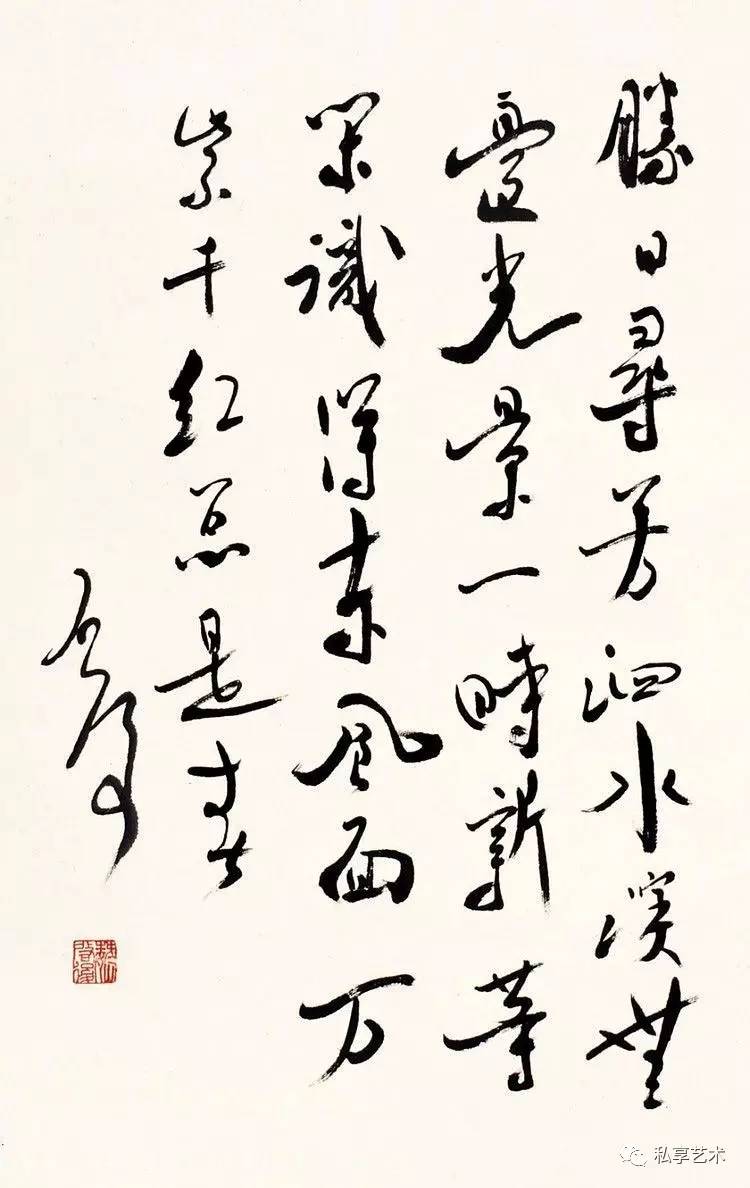 勝日尋芳泗水濱無
邊光景一時新等
閑識得東風面万
紫千紅總是春
啟後
私享艺术